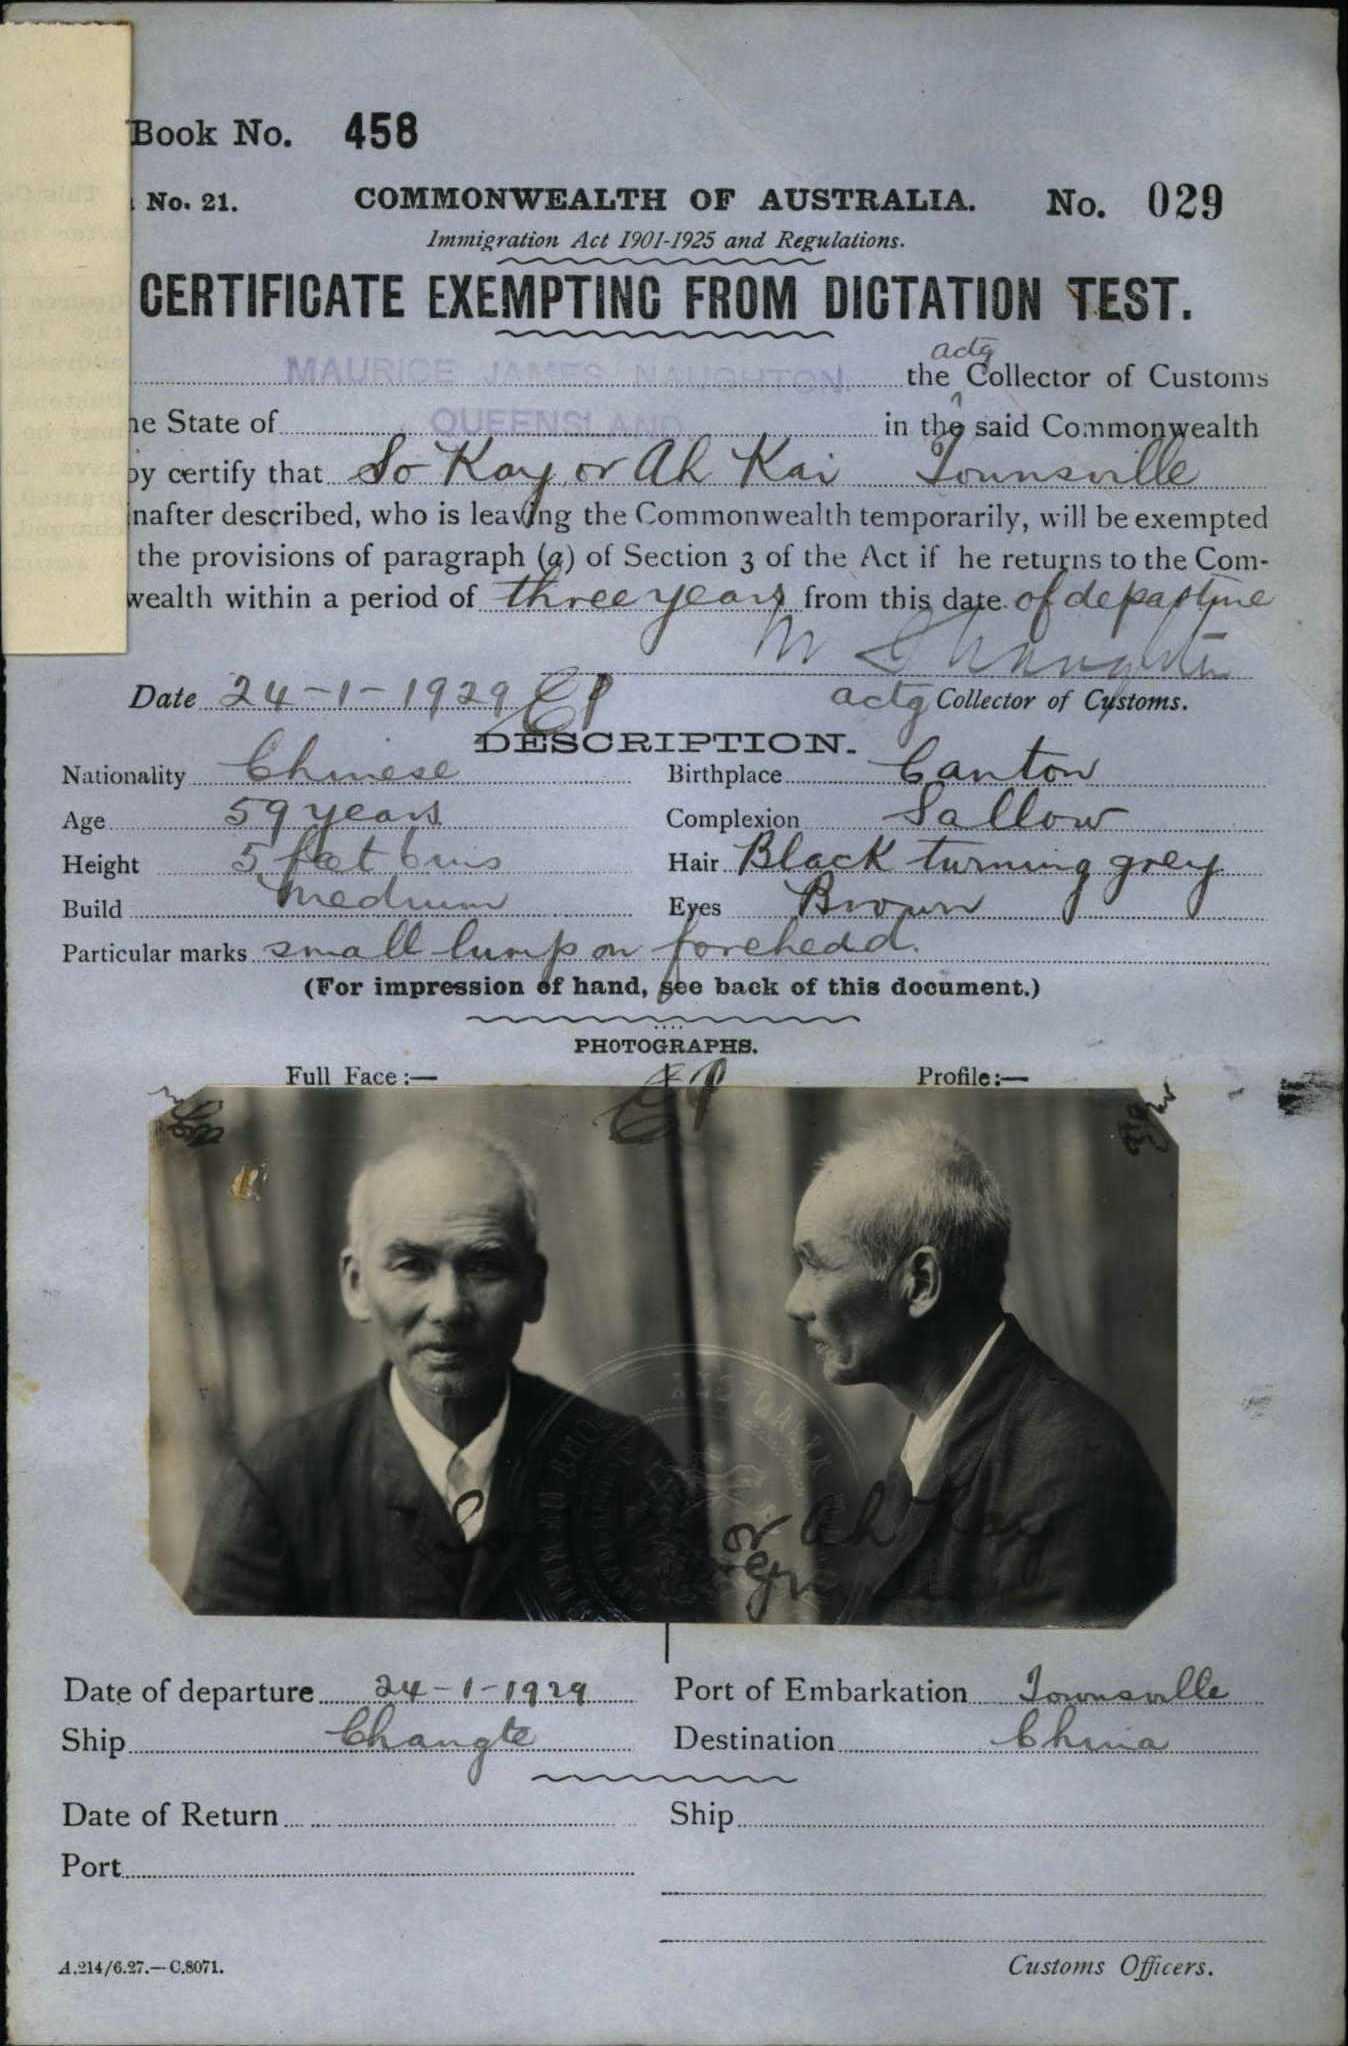 Book No. 458
No. 21. COMMONWEALTH OF AUSTRALIA. No. 029
Immigration Act 1901-1925 and Regulations.
CERTIFICATE EXEMPTING FROM DICTATION TEST.
actg
MAURICE JAMES NAUGHTON the Collector of Customs
he State of QUEENSLAND in the said Commonwealth
by certify that So Kay or Ah Kai Townsville
nafter described, who is leaving the Commonwealth temporarily, will be exempted
the provisions of paragraph (a) of Section 3 of the Act if he returns to the Com-
wealth within a period of three years from this date of departure
M J Naughton
Date 24-1-1929 actg Collector of Customs.
DESCRIPTION.
Nationality Chinese Birthplace Canton
Age 59 years Complexion Sallow
Height 5 feet 6 ins Hair Black turning grey
Build medium Eyes Brown
Particular marks small lump on forehead.
(For impression of hand, see back of this document.)
PHOTOGRAPHS.
Full Face:— Profile:—
So or Ah Kay
Date of departure 24-1-1929 Port of Embarkation Townsville
Ship Changte Destination China
Date of Return Ship
Port
A.214/6.27.—C.8071. Customs Officers.